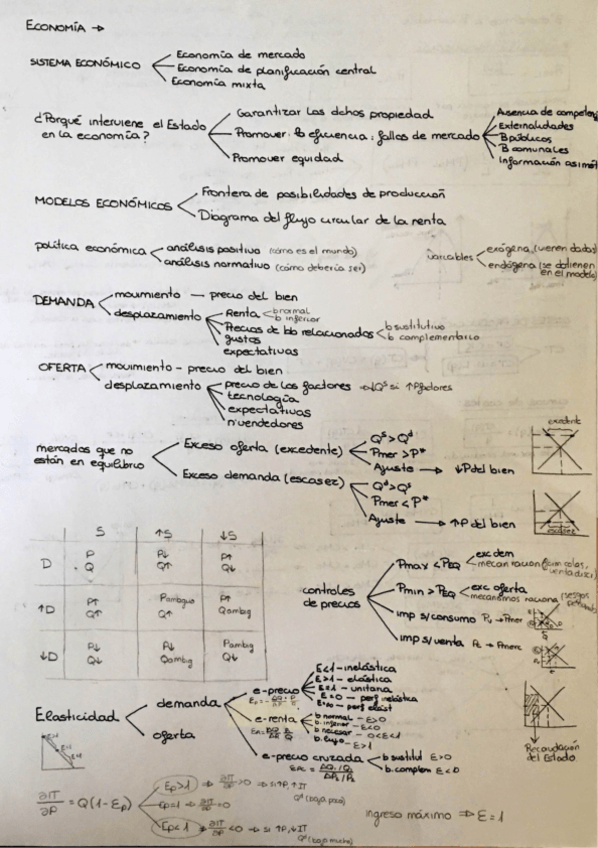 ECONOMÍA →
SISTEMA ECONÓMICO
Economía de mercado
Economía de planificación central
Economía mixta
¿Porqué interviene el Estado en la economía?
Garantizar los dchos propiedad
Promover la eficiencia: fallos de mercado
Promover equidad
Ausencia de compet
Externalidades
B públicos
B comunales
Información asimét
MODELOS ECONÓMICOS
Frontera de posibilidades de producción
Diagrama del flujo circular de la renta
política económica
análisis positivo (cómo es el mundo)
análisis normativo (cómo debería ser)
variables
exógena (vienen dadas)
endógena (se obtienen en el modelo)
DEMANDA
movimiento — precio del bien
desplazamiento
Renta
b normal
b inferior
Precios de bb relacionados
b sustitutivo
b complementario
gustos
expectativas
OFERTA
movimiento - precio del bien
desplazamiento
precio de los factores → ↓Qs si ↑Pfactores
tecnología
expectativas
nº vendedores
mercados que no están en equilibrio
Exceso oferta (excedente)
Qs > Qd
Pmer > P*
Ajuste → ↓P del bien
Exceso demanda (escasez)
Qd > Qs
Pmer < P*
Ajuste → ↑P del bien
excedente
escasez
S ↑S ↓S
D P Q P↓ Q↑ P↑ Q↓
↑D P↑ Q↑ Pambigua Q↑ P↑ Qambig
↓D P↓ Q↓ P↓ Qambig Pambig Q↓
controles de precios
Pmax < PEQ
exc dem
Pmin > PEQ
exc oferta
imp s/consumo
imp s/venta
Recaudación del Estado
Elasticidad
demanda
oferta
e-precio
E<1 - inelástica
E>1 - elástica
E=1 - unitaria
E=0 - perf inelástica
E=∞ - perf elast
e-renta
b normal - E>0
b. inferior - E<0
b necesar - 0<E<1
b. lujo - E>1
e-precio cruzada
b sustitut E>0
b complem E<0
∂IT/∂P = Q(1-Ep)
Ep>1 ⇒ ∂IT/∂P >0 ⇒ si ↑P, ↑IT
Qd (baja poco)
Ep=1 ⇒ ∂IT/∂P =0
Ep<1 ⇒ ∂IT/∂P <0 ⇒ si ↑P, ↓IT
Qd (baja mucho)
ingreso máximo ⇒ E=1